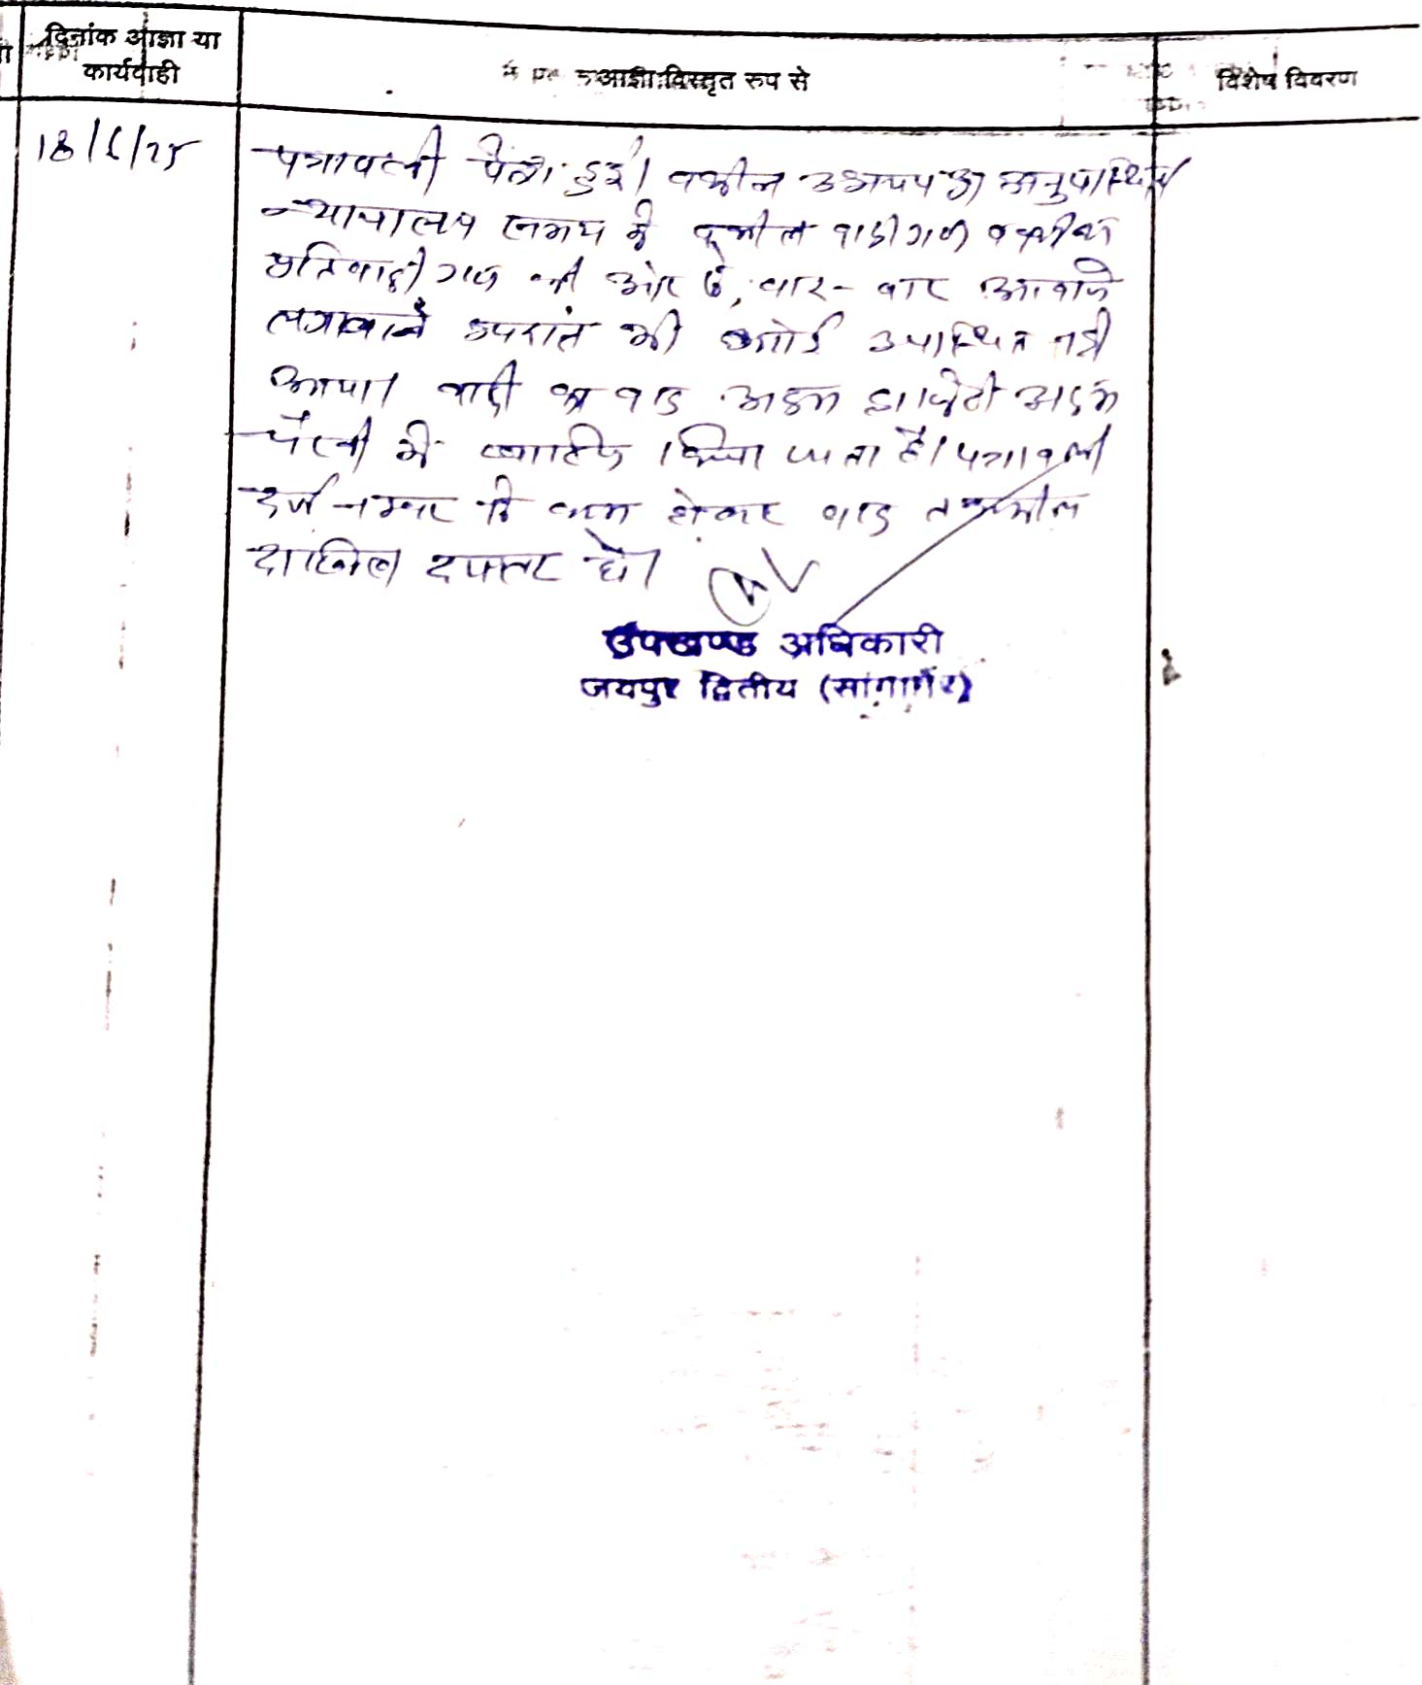 दिनांक आज्ञा या
कार्यवाही
आज्ञा विस्तृत रुप से
विशेष विवरण
18/6/25
पत्रावली पेश हुई। वकील उभयपक्ष अनुपस्थित
न्यायालय समय में वकील वादीगण व वकील
प्रतिवादीगण की ओर से, बार-बार आवाजे
लगवाने उपरांत भी कोई उपस्थित नही
आया। वादी का वाद अदम हाजिरी अदम
पैरवी में खारिज किया जाता है। पत्रावली
दर्ज नम्बर से कम होकर बाद तकमील
दाखिल दफ्तर हो।
उपखण्ड अधिकारी
जयपुर द्वितीय (सांगानेर)